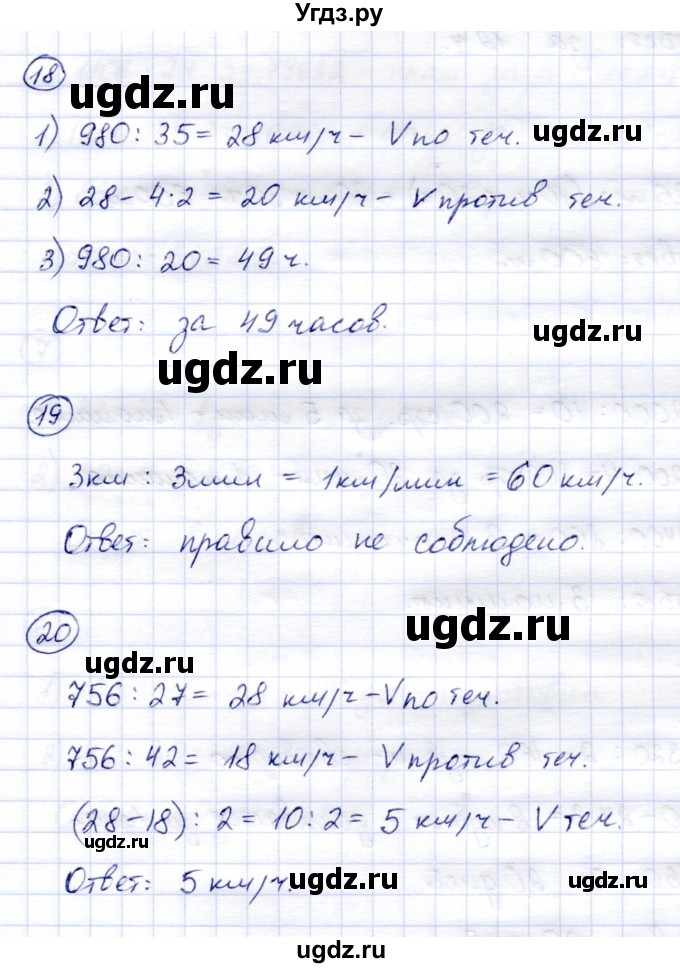 Угдз.ру
18
ugdz.ru
1) 980 : 35 = 28 км/ч – V по теч. ugdz.ru
2) 28 – 4·2 = 20 км/ч – V против теч.
3) 980 : 20 = 49 ч.
Ответ: за 49 часов. ugdz.ru
ugdz.ru
19
3км : 3мин = 1км/мин = 60 км/ч.
Ответ: правило не соблюдено.
20 ugdz.ru
ugdz.ru
756 : 27 = 28 км/ч – V по теч.
756 : 42 = 18 км/ч – V против теч.
(28–18) : 2 = 10 : 2 = 5 км/ч – V теч.
ugdz.ru
Ответ: 5 км/ч. ugdz.ru ugdz.ru
ugdz.ru